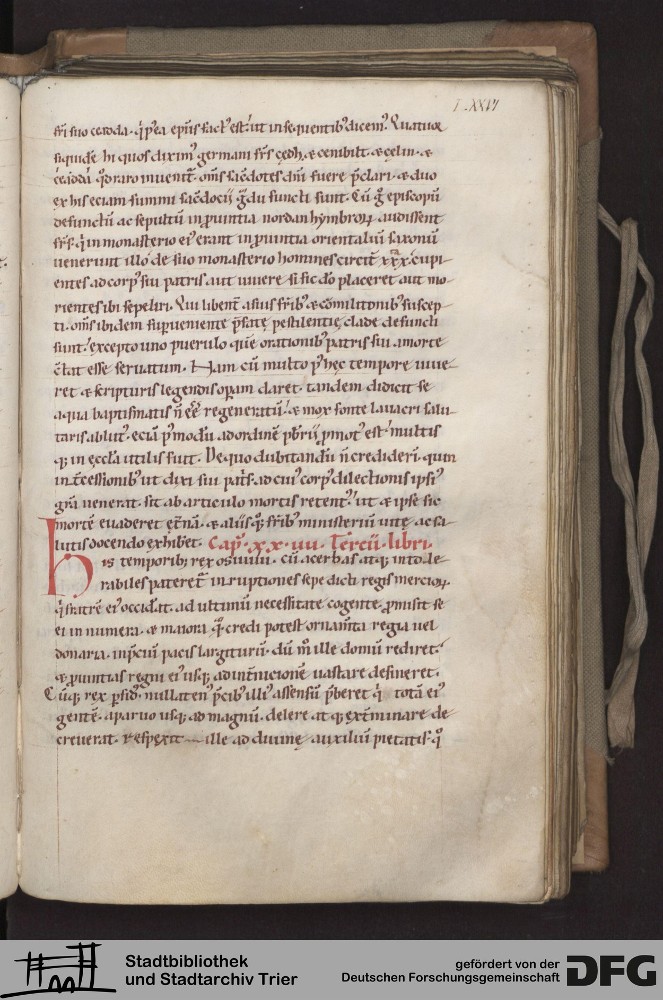 L.XXIV
fr̄i suo ceadda· q̇ p̄ea ep̄us fact' est· ut in sequentib; dicem'. Quatuor
siquidē hi quos dixim' germani fr̄s cędḋ· & cenibilt· & cęlin· &
ceadda· q̄d raro inuenit̄· om̄s sacdotes dn̄i fuere p̄clari· & duo
ex his eciam summi sacdocii g̃du functi sunt· Cū g̊ episcopū
defunctū ac sepultū in ꝓuintia nordan hymbroꝝ audissent
fr̄s· q̇ in monasterio ei' erant in ꝓuintia orientaliū saxonū
uenerunt illo de suo monasterio homines circit̄ xxx· cupi-
entes ad corp' sui patris aut uiuere si sic dō placeret aut mo-
rientes ibi sepeliri. Qui libent̄ a suis fr̄ib; & cōmilitonib; suscep-
ti· om̄s ibidem supueniente p̄fatę pestilentię clade defuncti
sunt· excepto uno puerulo quē orationib; patris sui a morte
c̄stat esse seruatum. Nam cū multo p' hęc tempore uiue-
ret & scripturis legendis opam daret· tandem didicit se
aqua baptismatis n̄ eē regeneratū· & mox fonte lauacri salu-
taris ablut'· eciā p' modū ad ordinē pb̄rii ꝓmot' est· multis
q; in ęccl̄a utilis fuit. De quo dubitandū n̄ crediderī· quin
int̄cessionib; ut dixi sui pat̄s· ad cui' corp' dilectionis ipsi'
gr̄a uenerat· sit ab articulo mortis retent'· ut & ipse sic
mortē euaderet et̄nā· & aliis q;· fr̄ib; ministeriū uitę ac sa-
lutis docendo exhibet. Cap̄· xx· iiii· Tercii· libri·
His temporib; rex osuuiu· cū acerbas atq; intole-
rabiles pateret̄ inruptiones sepe dicti regis mercioꝝ·
q̇ fratrē ei' occid̄at· ad ultimū necessitate cogente ꝓmisit se
ei innumera· & maiora q̄ credi potest ornam̄ta regia uel
donaria· in p̄ciū pacis largiturū· dū m̄ ille domū rediret·
& ꝓuintias regni ei' usq; ad int̄nicionē uastare desineret.
Cūq; rex p̄fid'· nullaten' p̄cib; illi' assensū p̄beret q̇ totā ei'
gentē· a paruo usq; ad magnū· delere atq; ext̄minare de-
creuerat· respexit ille ad diuinę auxiliū pietatis· q̊
Stadtbibliothek
und Stadtarchiv Trier
gefördert von der
Deutschen Forschungsgemeinschaft
DFG